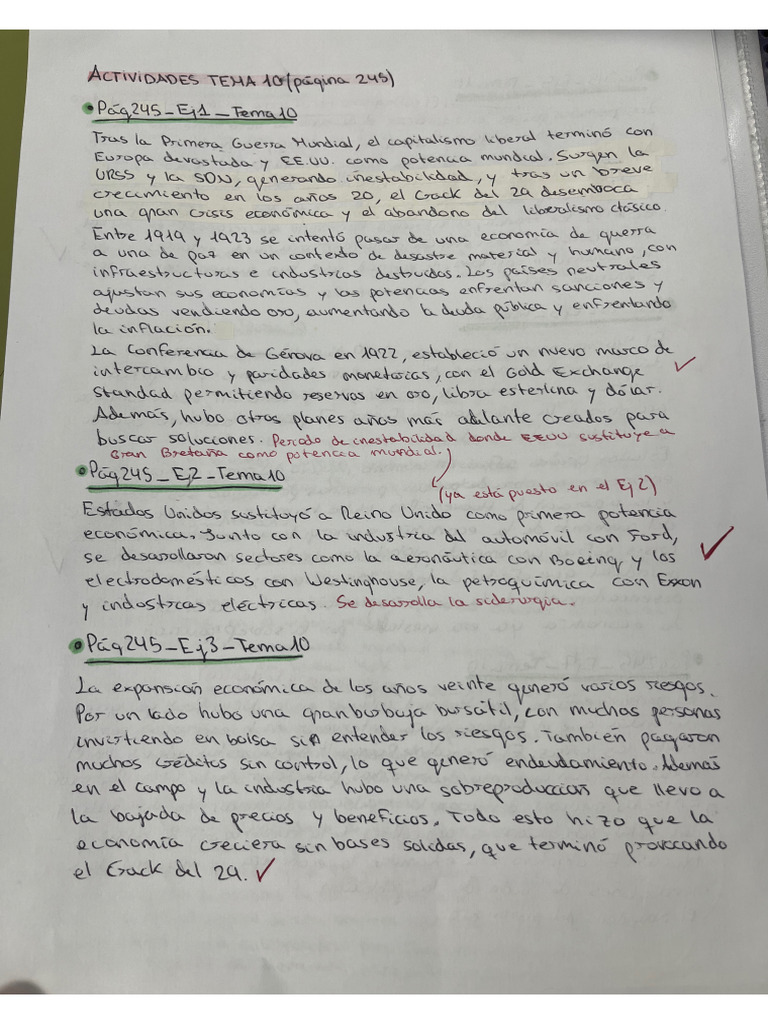 ACTIVIDADES TEMA 10 (página 245)
Pág245_Ej1_Tema10
Tras la Primera Guerra Mundial, el capitalismo liberal terminó con
Europa devastada y EE.UU. como potencia mundial. Surgen la
URSS y la SDN, generando inestabilidad, y tras un breve
crecimiento en los años 20, el Crack del 29 desemboca
una gran crisis económica y el abandono del liberalismo clásico.
Entre 1919 y 1923 se intentó pasar de una economía de guerra
a una de paz en un contexto de desastre material y humano, con
infraestructuras e industrias destruidas. Los países neutrales
ajustan sus economías y las potencias enfrentan sanciones y
deudas vendiendo oro, aumentando la deuda pública y enfrentando
la inflación.
La Conferencia de Génova en 1922, estableció un nuevo marco de
intercambio y paridades monetarias, con el Gold Exchange
Standad permitiendo reservas en oro, libra esterlina y dólar.
Además, hubo otros planes años más adelante creados para
buscar soluciones. Periodo de inestabilidad donde EEUU sustituye a
Gran Bretaña como potencia mundial.
Pág245_Ej2_Tema10
(ya está puesto en el Ej2)
Estados Unidos sustituyó a Reino Unido como primera potencia
económica. Junto con la industria del automóvil con Ford,
se desarollaron sectores como la aeronáutica con Boeing y los
electrodomésticos con Westinghouse, la petroquímica con Exxon
y industrias eléctricas. Se desarolla la siderurgia.
Pág245_Ej3_Tema10
La expansión económica de los años veinte generó varios riesgos.
Por un lado hubo una gran burbuja bursátil, con muchas personas
invirtiendo en bolsa sin entender los riesgos. También pagaron
muchos créditos sin control, lo que generó endeudamiento. Además
en el campo y la industria hubo una sobreproduccion que llevo a
la bajada de precios y beneficios. Todo esto hizo que la
economía creciera sin bases solidas, que terminó provocando
el Crack del 29.